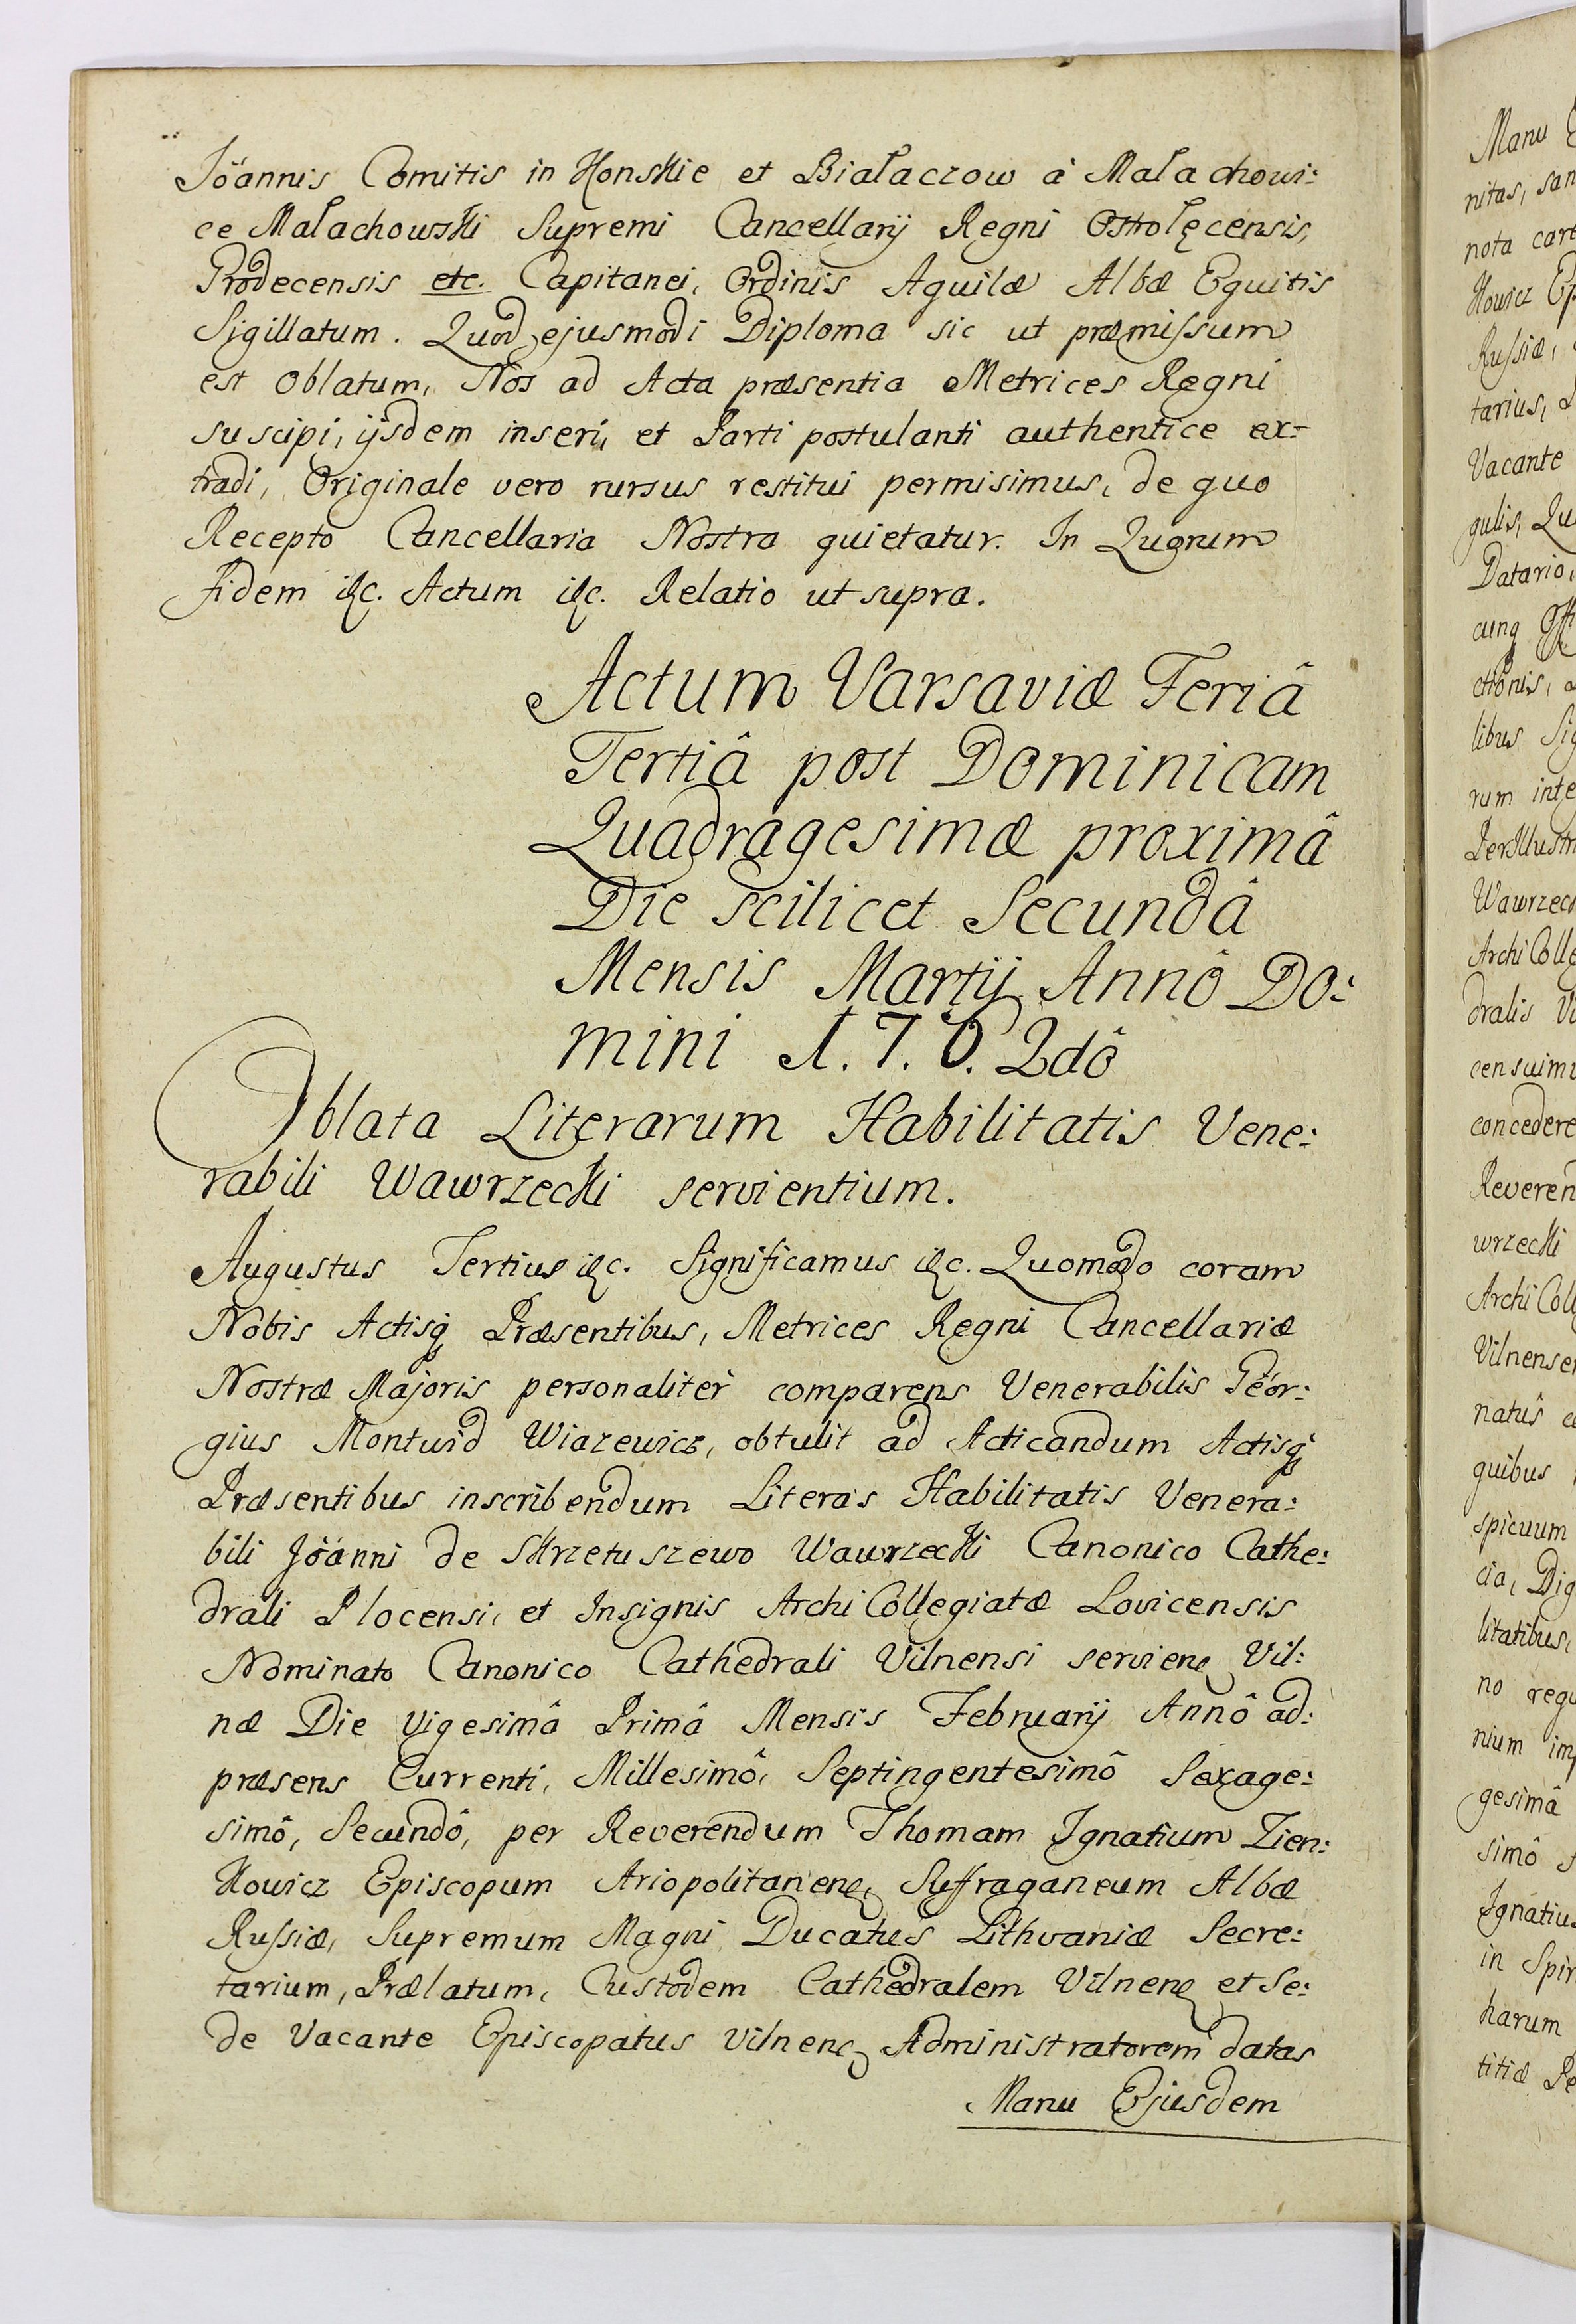 Jöannis Comitis in Konskie et Białaczow à Małachowi:
ce Małachowski Supremi Cancellarij Regni Ostrołęcensis,
Grodecensis etc. Capitanei, Ordinis Aquilæ Albæ Equitis
Sigillatum. Quod ejusmodi Diploma sic ut præmissum
est oblatum, Nos ad Acta præsentia Metrices Regni
suscipi, ijsdem inseri, et Parti postulanti authentice ex:
tradi, Originale vero rursus restitui permisimus, de quo
Recepto Cancellaria Nostra quietatur. In Quorum
Fidem &c. Actum &c. Relatio ut supra.
Actum Varsaviæ Feriâ
Tertiâ post Dominicam
Quadragesimæ proximâ
Die scilicet Secundâ
Mensis Martij Annô Do:
mini 1.7.6.2dô
Oblata Literarum Habilitatis Vene:
rabili Wawrzecki servientium.
Augustus Tertius &c. Significamus &c. Quomodo coram
Nobis Actisq Præsentibus, Metrices Regni Cancellariæ
Nostræ Majoris personalitèr comparens Venerabilis Géor:
gius Montwid Wiazewicz, obtulit ad Acticandum Actisq
Præsentibus inscribendum Literas Habilitatis Venera:
bili Jöanni de Skrzetuszewo Wawrzecki Canonico Cathe:
drali Plocensi, et Insignis Archi Collegiatæ Lovicensis
Nominato Canonico Cathedrali Vilnensi servienę Vil:
næ Die Vigesimâ Primâ Mensis Februarij Annô ad:
præsens Currenti, Millesimô, Septingentesimô Sexage:
simô, Secundô, per Reverendum Thomam Ignatium Zien:
kowicz Episcopum Ariopolitanenę, Suffraganeum Albæ
Russiæ, Supremum Magni Ducatus Lithvaniæ Secre:
tarium, Prælatum, Custodem Cathedralem Vilnenę et Se:
de Vacante Episcopatus Vilnenę Administratorem datas
Manu Ejusdem
Manu
nitas, san
nota care
kowicz Ep
Russiæ,
tarius,
Vacante
gulis, Qu
Datario,
cunq Offi
ctionis,
libus Sig
rum inte
Perillustr
Wawrzec
Archi Colle
dralis Vi
censuimu
concedere
Reveren
wrzecki
Archi Coll
Vilnense
natûs
quibus
spicuum
cia, Dig
litatibus,
no regu
nium imp
gesimâ
simô
Ignatiu
in Spir
harum
titiæ Pe